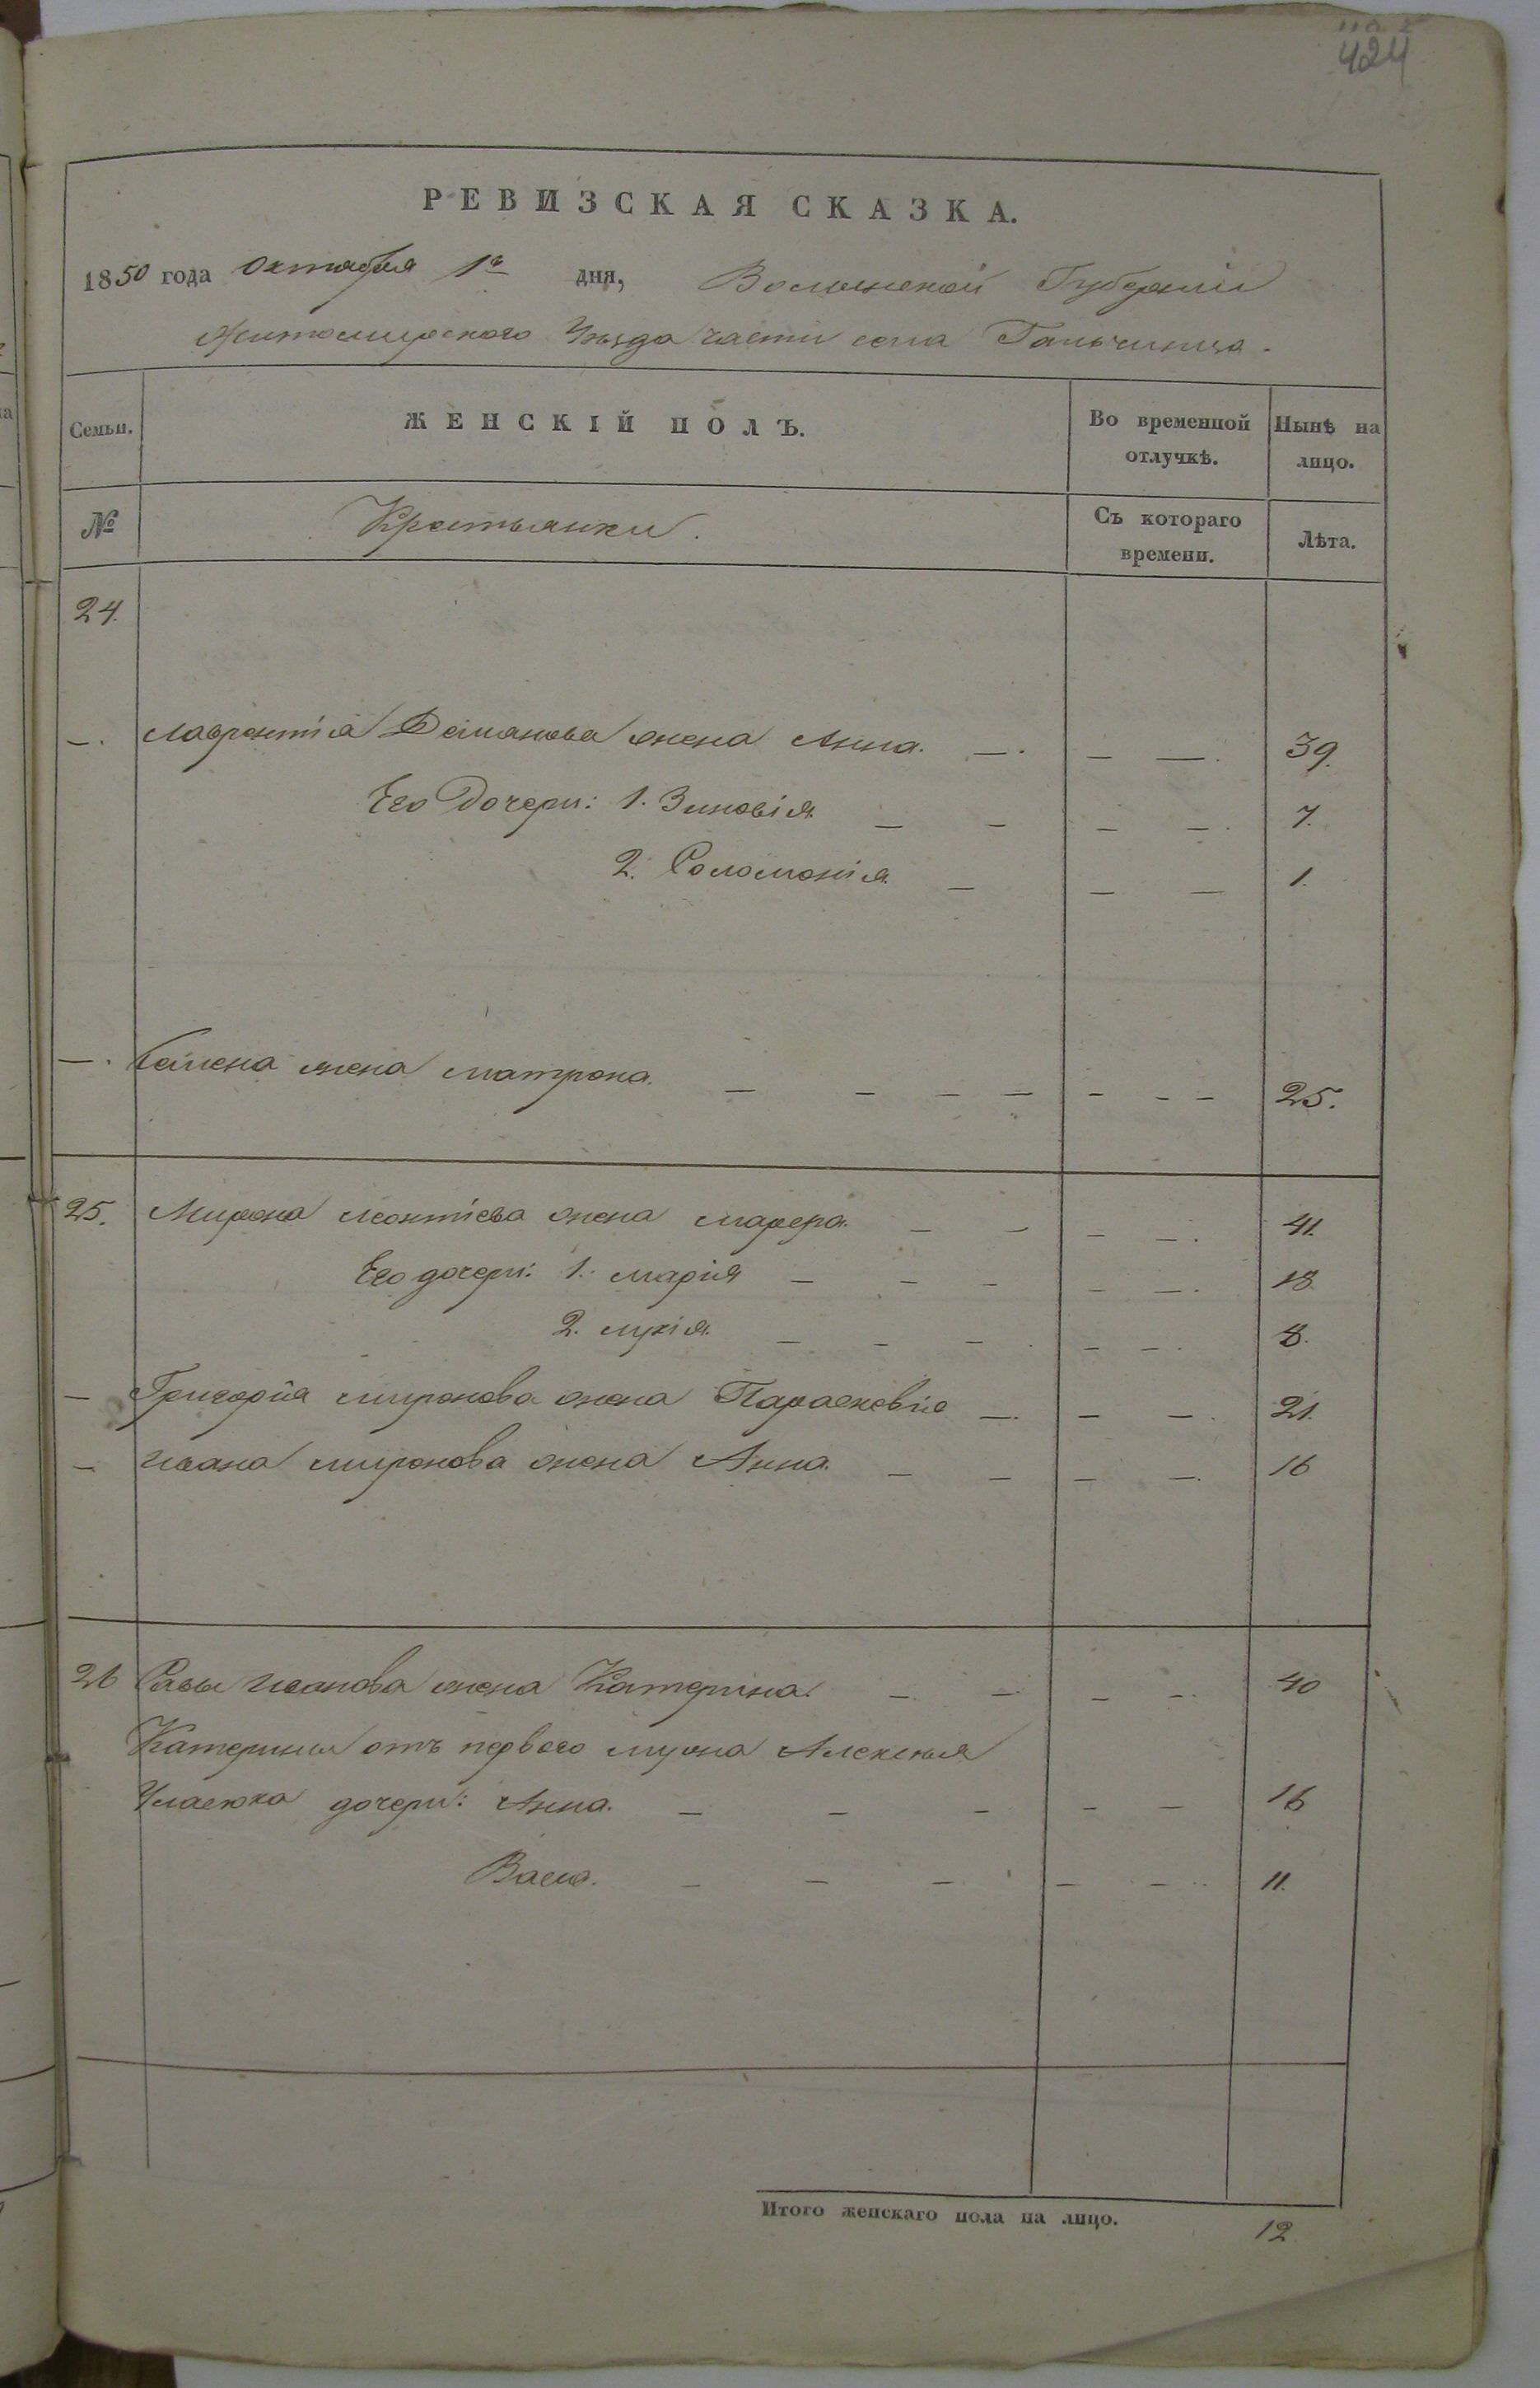 424
РЕВИЗСКАЯ СКАЗКА.
1850 года Октября 1го дня, Волынской Губерніи
Житомирского Уезда части села Гальчинца.
Семьи. ЖЕНСКІЙ ПОЛЪ. Во временной отлучкѣ. Нынѣ на лицо.
№ Крестьянки. Съ котораго времени. Лѣта.
24.
—. Лаврентія Демянова жена Анна. —. — —. 39.
Его Дочери: 1. Зиновія — — — —. 7.
2. Соломонія — — — 1.
—. Семена жена Матрона. — — — — - - - 25.
25. Мирона Леонтіева жена Марфра. — — — —. 41.
Его дочери: 1. Марія — — — — —. 18
2. Лукія — — — — —. 8.
— Григорія Миронова жена Параскевія —. — —. 21.
— Ивана Миронова жена Анна. — — — —. 16
26 Савы Иванова жена Катерина. — — — —. 40
Катерины отъ перваго мужа Алексея
дочери: Анна. — — — — — 16
Васса. — — — — — 11.
Итого женскаго пола на лицо. 12